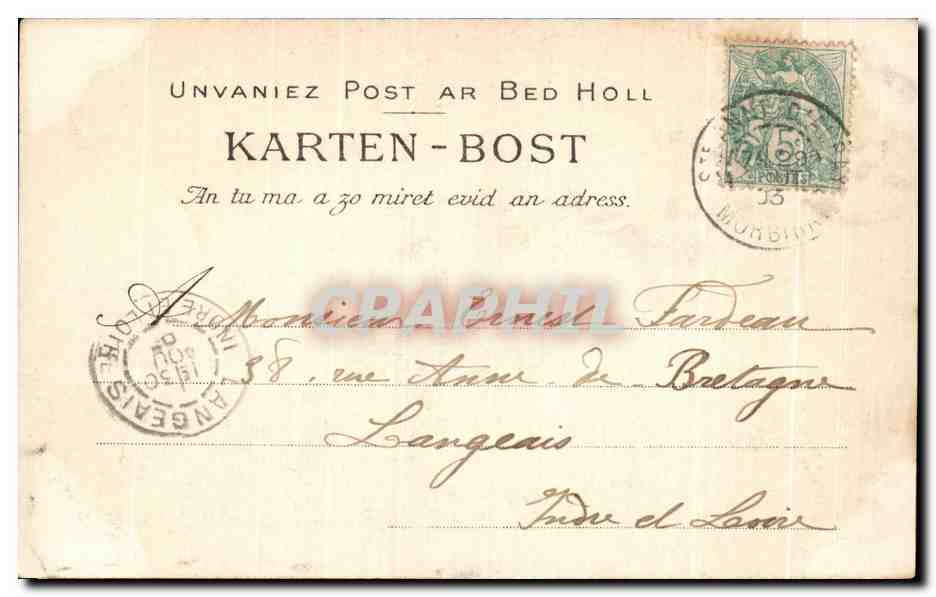 UNVANIEZ POST AR BED HOLL
KARTEN-BOST
An tu ma a zo miret evid an adress.
5c
POSTES
03
MORBIHAN
A Monsieur Ernest Fardeau
38, rue Anne de Bretagne
Langeais
Indre et Loire
LANGEAIS
INDRE ET LOIRE
CPAPHIL